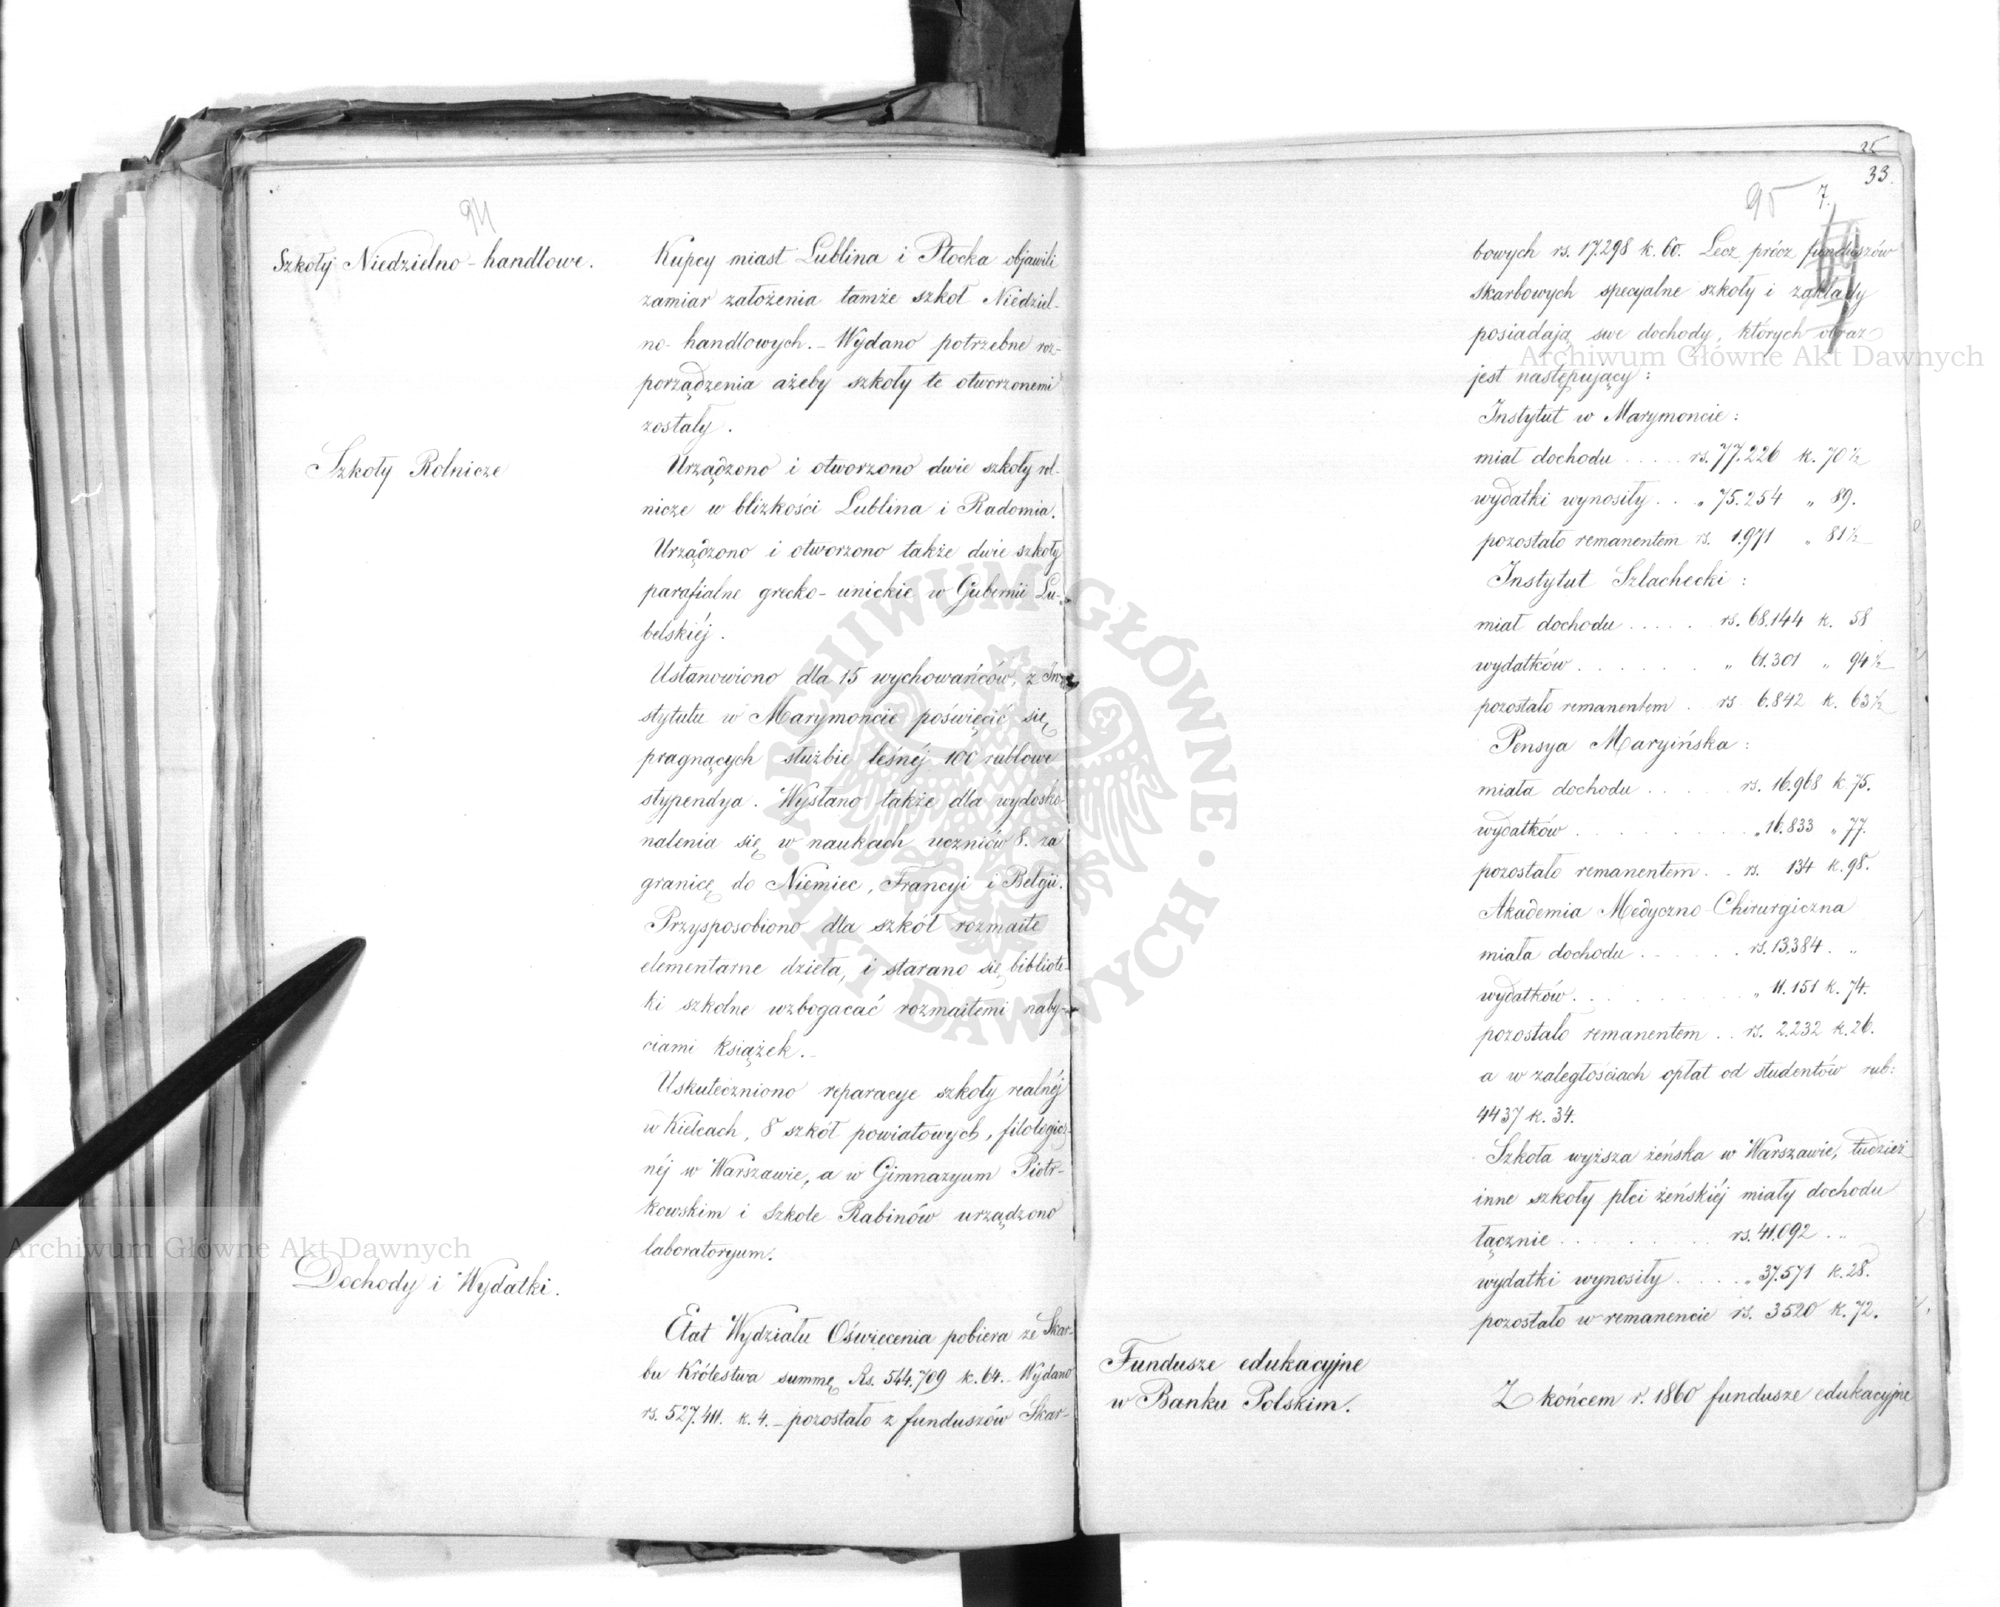 94
Szkoły Niedzielno-handlowe.
Kupcy miast Lublina i Płocka objawili
zamiar założenia tamże szkoł Niedziel-
no-handlowych. – Wydano potrzebne roz-
porządzenia ażeby szkoły te otworzonemi
zostały.
Szkoły Rolnicze
Urządzono i otworzono dwie szkoły rol-
nicze w blizkości Lublina i Radomia.
Urządzono i otworzono także dwie szkoły
parafialne grecko-unickie w Gubernii Lu-
belskiéj.
Ustanowiono dla 15 wychowańców, z In-
stytutu w Marymoncie poświęcić się
pragnących służbie leśnéj 100 rublowe
stypendya. Wysłano także dla wydosko-
nalenia się w naukach uczniów 8. za
granicę do Niemiec, Francyi i Belgii.
Przysposobiono dla szkół rozmaite
elementarne dzieła, i starano się bibliote-
ki szkolne wzbogacać rozmaitemi naby-
ciami książek. –
Uskuteczniono reparacye szkoły realnéj
w Kielcach, 8 szkół powiatowych, filologicz-
néj w Warszawie, a w Gimnazyum Piotr-
kowskim i Szkole Rabinów urządzono
laboratoryum.
Dochody i Wydatki.
Etat Wydziału Oświecenia pobiera ze Skar-
bu Królestwa summę Rs. 544,709 k. 64. – Wydano
rs. 527.411. k. 4. – pozostało z funduszów Skar-
25
33.
95 7.
bowych rs. 17.298 k. 60. Lecz prócz funduszów
skarbowych specyalne szkoły i zakłady
posiadają swe dochody, których obraz
jest następujący:
Instytut w Marymoncie:
miał dochodu ..... rs. 77.226 k. 70 ½
wydatki wynosiły .. „ 75.254 „ 89.
pozostało remanentem rs. 1.971 „ 81 ½
Instytut Szlachecki:
miał dochodu ..... rs. 68.144 k. 58
wydatków ....... „ 61.301 „ 94 ½
pozostało remanentem . rs 6.842 k. 63 ½
Pensya Maryińska:
miała dochodu ..... rs. 16.968 k. 75.
wydatków ......... „ 16.833 „ 77.
pozostało remanentem .. rs. 134 k. 98.
Akademia Medyczno-Chirurgiczna
miała dochodu ...... rs. 13,384. „
wydatków ......... „ 11.151 k. 74.
pozostało remanentem .. rs. 2.232 k. 26.
a w zaległościach opłat od studentów rub:
4437 k. 34.
Szkoła wyższa żeńska w Warszawie, tudzież
inne szkoły płci żeńskiéj miały dochodu
łącznie ........ rs. 41,092 ..
wydatki wynosiły .... „ 37.571 k. 28.
pozostało w remanencie rs. 3520 k. 72.
Fundusze edukacyjne
w Banku Polskim.
Z końcem r. 1860 fundusze edukacyjne
Archiwum Główne Akt Dawnych
Archiwum Główne Akt Dawnych
ARCHIWUM GŁÓWNE · AKT DAWNYCH ·